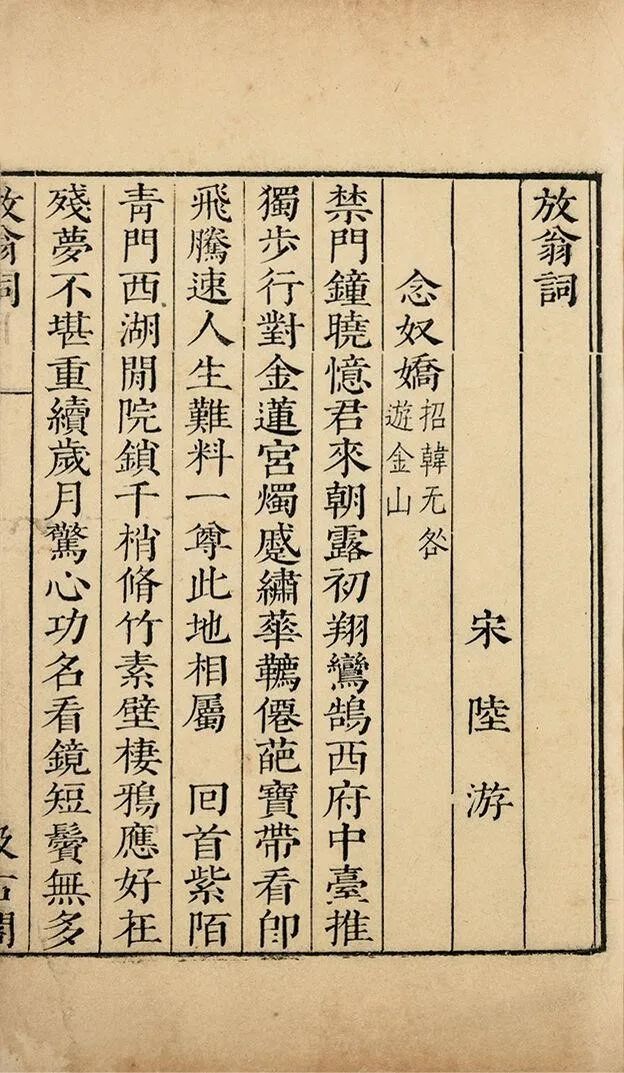 放翁詞
宋陸游
念奴嬌
招韓无咎
遊金山
禁門鐘曉憶君來朝露初翔鸞鵠西府中臺推
獨步行對金蓮宮燭蹙繡華韉僊葩寶帶看卽
飛騰速人生難料一尊此地相屬 回首紫陌
靑門西湖閒院鎖千梢脩竹素壁棲鴉應好在
殘夢不堪重續歲月驚心功名看鏡短鬢無多
放翁詞
汲古閣